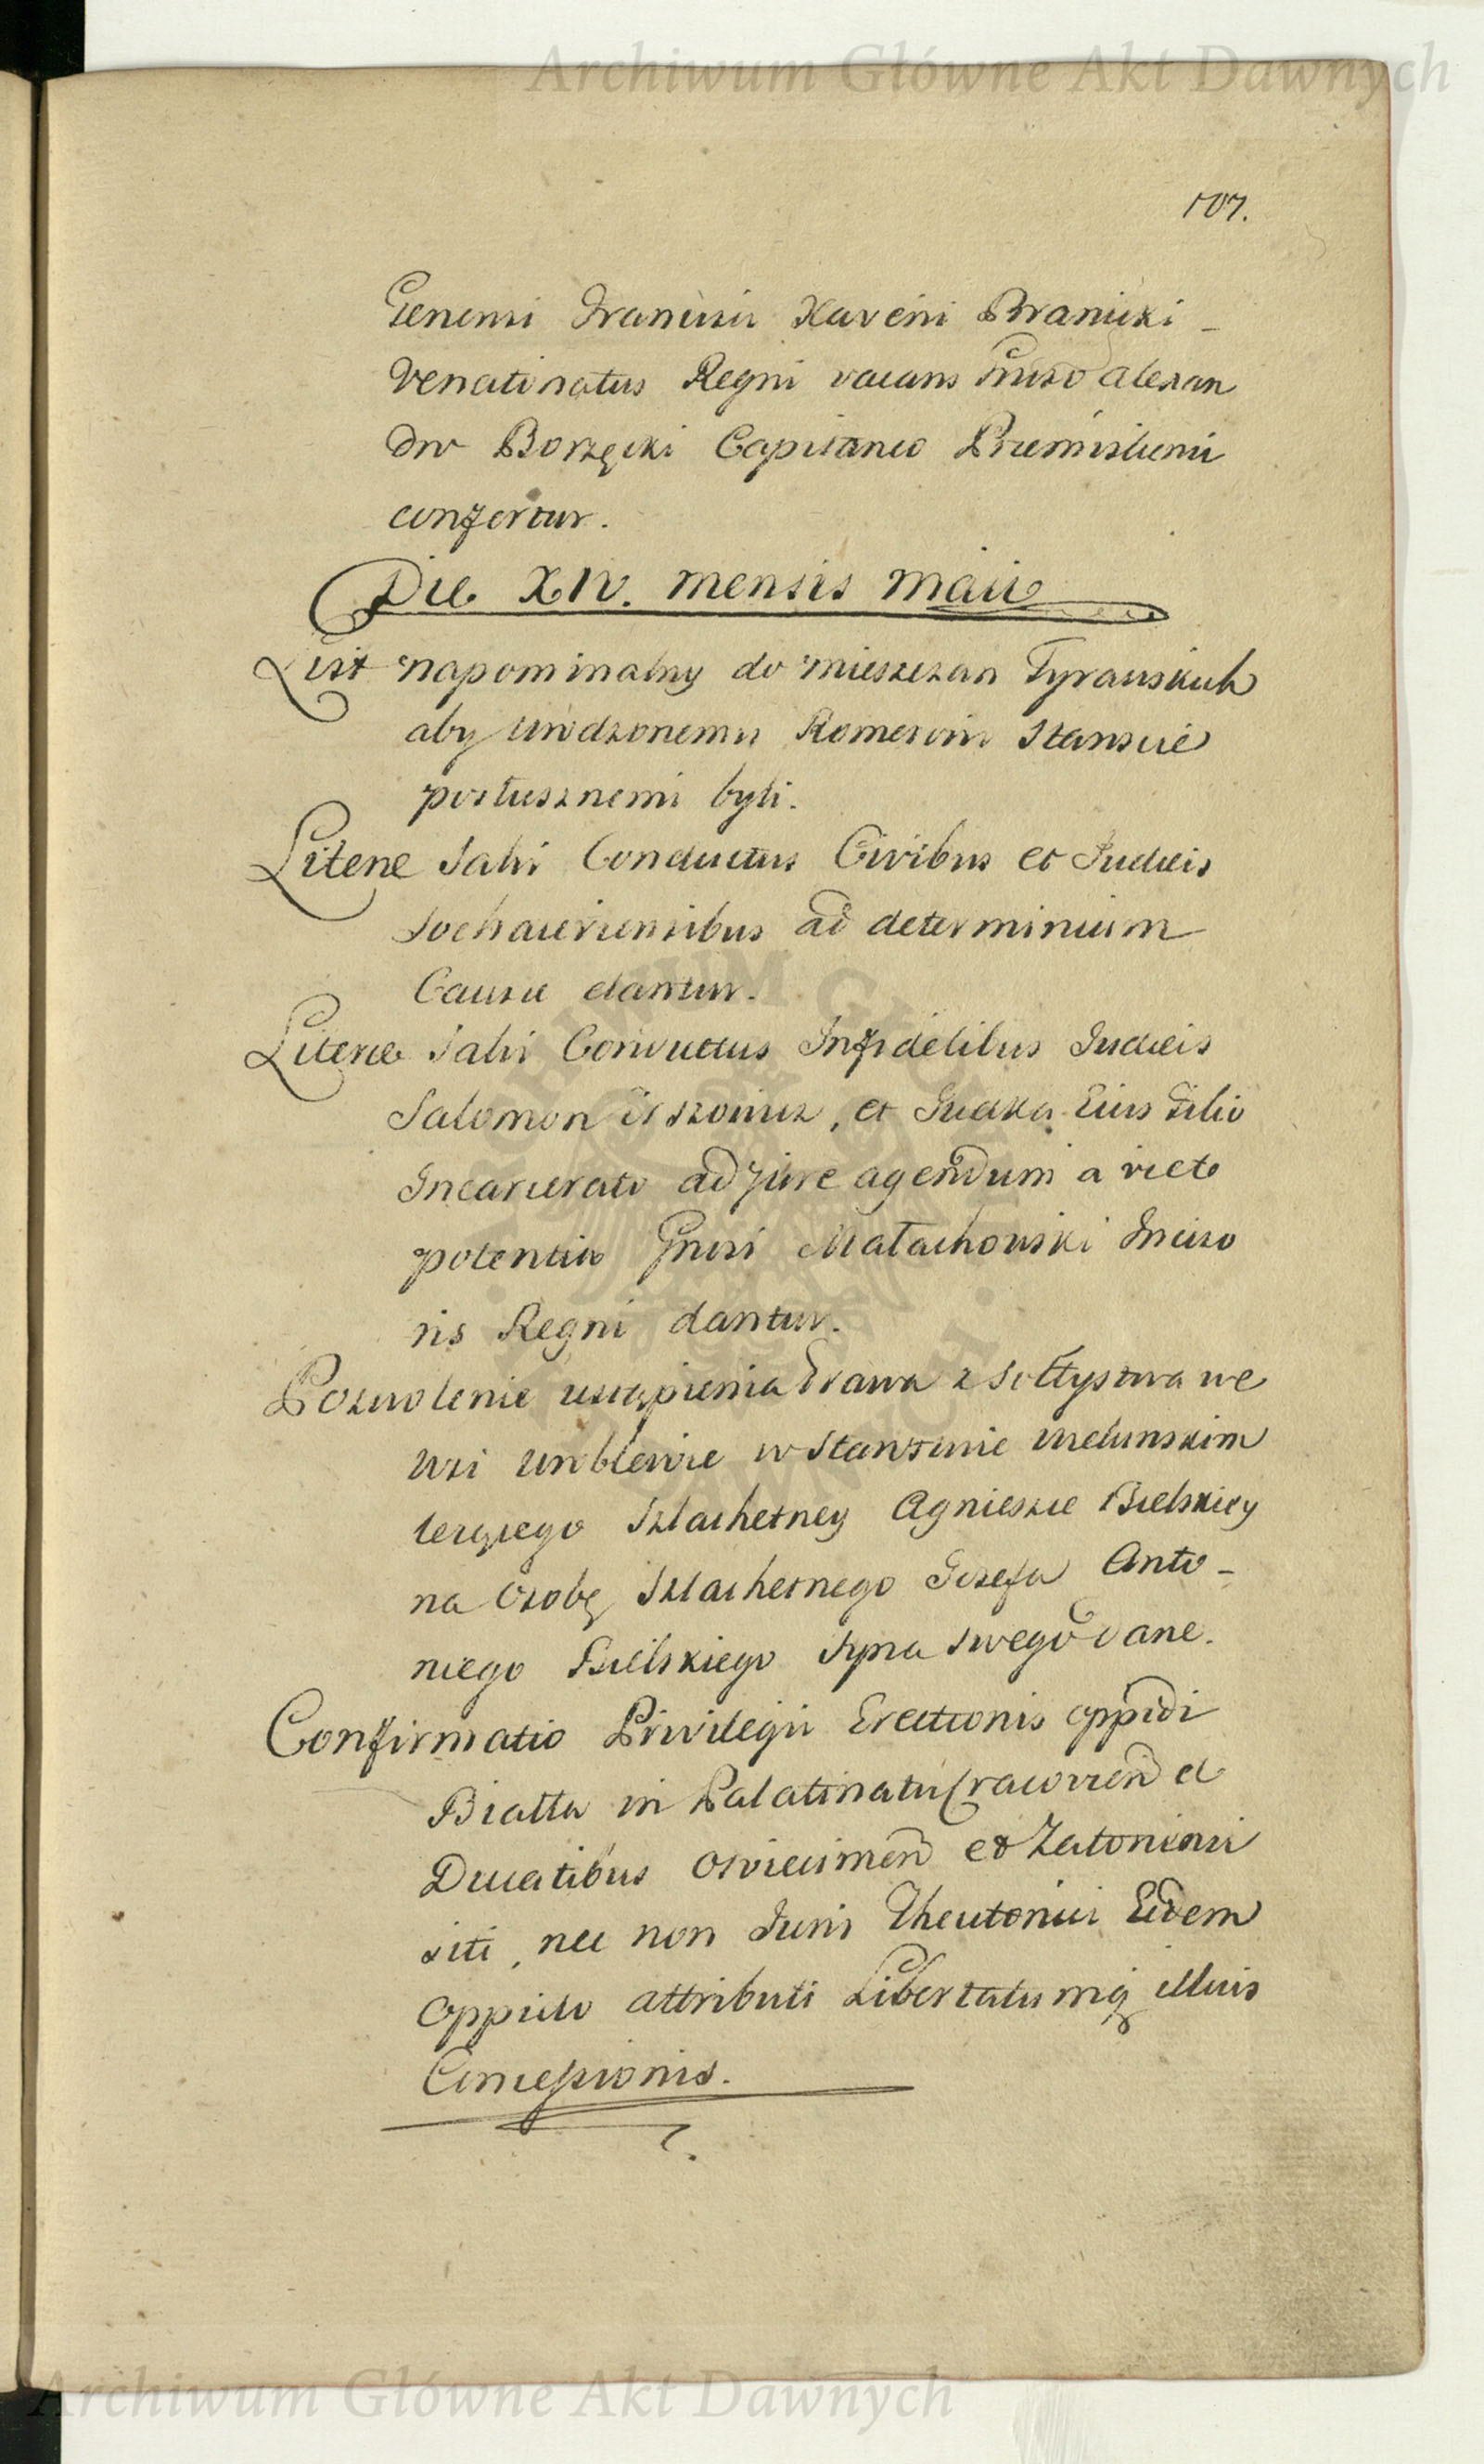 Archiwum Główne Akt Dawnych
107.
Generosi Francisci Xaverii Branicki
Venatoratus Regni vacans Gnroso Alexan
dro Borzęcki Capitaneo Przemisliensi
confertur.
Die XIV. mensis Maii
List napominalny do mieszczan
aby urodzonemu Romerowi Staroscie
posłusznemi byli.
Literae Salvi Conductus Civibus et Judaeis
Sochaczeviensibus ad determinium
Causae dantur.
Literae Salvi Conductus Infidelibus Judaeis
Salomon et Judka Eius Filio
Incarcerato ad jure agendum a vice
potentia Gnrosi Małachowski Inciso
ris Regni dantur.
Pozwolenie ustąpienia Prawa z Sołtystwa we
Wsi Wroblewie w Starostwie Wielunskim
lezącego Szlachetney Agnieszce Bielskiey
na Osobę Szlachetnego Jozefa Anto-
niego Bielskiego Syna swego dane.
Confirmatio Privilegii Erectionis oppidi
Bialla in Palatinatu Cracovien et
Ducatibus Osviecimen et Zatoriensi
siti, nec non Juris Theutonici Eidem
Oppido attributi Libertatumq illius
Concessionis.
ARCHIWUM GŁÓWNE AKT DAWNYCH
Archiwum Główne Akt Dawnych